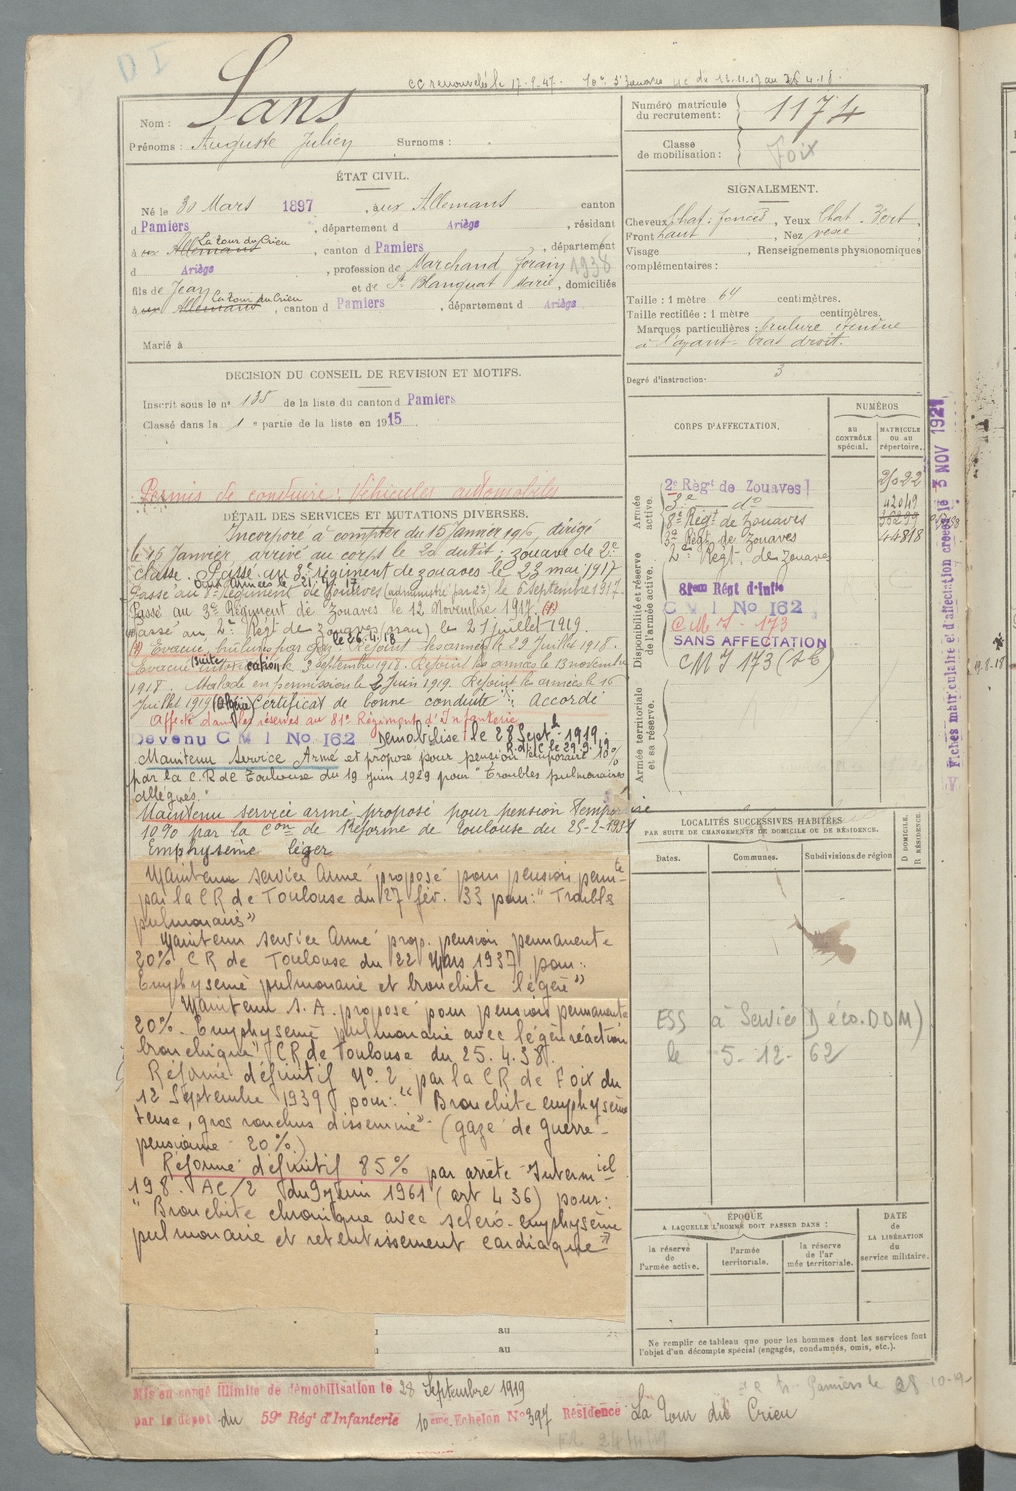 D I
CC renouvelé le 17-9-47. 10 m 5 Janvier ac de 13-11-17 au 26-4-18.
Nom : Sans
Prénoms : Auguste Julien Surnoms : .
ÉTAT CIVIL.
Né le 30 Mars 1897, à ux Allemans canton
d Pamiers, département d Ariège, résidant
à ux Allemans La tour du Crieu, canton d Pamiers, département
d Ariège, profession de Marchand forain 1938
fils de Jean et de St Blanquat Marie, domiciliés
à ux Allemans La tour du Crieu, canton d Pamiers, département d Ariège
Marié à
DECISION DU CONSEIL DE REVISION ET MOTIFS.
Inscrit sous le n° 135 de la liste du canton d Pamiers
Classé dans la 1 e partie de la liste en 1915
Permis de conduire : Véhicules automobiles
DÉTAIL DES SERVICES ET MUTATIONS DIVERSES.
Incorporé à compter du 15 Janvier 1916, dirigé
le 16 Janvier, arrivé au corps le 20 dudit ; zouave de 2e
classe. Passé au 3e régiment de zouaves le 23 mai 1917
aux armées le 21
Passé au 8e Régiment de Zouaves (administré par 2e) le 6 septembre 1917.
Passé au 3e Régiment de Zouaves le 12 Novembre 1917. (1)
Passé au 2e Régt de Zouaves le 21 juillet 1919.
(1) Evacué, brûlures par gaz le 26.4.18. Rejoint les armées le 29 Juillet 1918.
Evacué (suite intoxication) le 3 septembre 1918. Rejoint les armées le 13 novembre
1918. Malade en permission le 2 Juin 1919. Rejoint les armées le 16
Juillet 1919 (Algérie) Certificat de bonne conduite : Accordé
Affecté dans les réserves au 81e Régiment d'Infanterie
Devenu C M I No 162 Démobilisé le 28 Septb 1919.
Maintenu Service Armé et proposé pour pension temporaire 10%
par la C.R de Toulouse du 19 juin 1929 pour "Troubles pulmonaires
allégués."
Maintenu service armé proposé pour pension temporaire
10% par la Con de Réforme de Toulouse du 25-2-1931
Emphysème léger
Maintenu service Armé proposé pour pension permte
par la CR de Toulouse du 27 fév. 33 pour : "Troubles
pulmonaires"
Maintenu service Armé prop. pension permanente
20% CR de Toulouse du 22 Mars 1937 pour :
Emphysème pulmonaire et bronchite légère"
Maintenu S.A. proposé pour pension permanente
20%. Emphysème pulmonaire avec légère réaction
bronchique" CR de Toulouse du 25.4.38.
Réformé définitif N°. 2 par la CR de Foix du
12 Septembre 1939 pour : "Bronchite emphysema
teuse, gros ronchus disséminés" (gazé de guerre -
pensionné 20%.)
Réformé définitif 85% par arrêté Intermiel
198. AC/2 du 9 juin 1961 (art 436) pour :
"Bronchite chronique avec scléro-emphysème
pulmonaire et retentissement cardiaque"
au
au
Numéro matricule du recrutement : 1174
Classe de mobilisation : Foix
SIGNALEMENT.
Cheveux Chat : foncés, Yeux Chat. Vert,
Front haut, Nez vexe
Visage , Renseignements physionomiques
complémentaires :
Taille : 1 mètre 64 centimètres.
Taille rectifiée : 1 mètre centimètres.
Marques particulières : brulure étendue
à l'avant-bras droit.
Degré d'instruction : 3
CORPS D'AFFECTATION.
NUMÉROS
AU CONTRÔLE spécial.
MATRICULE ou au répertoire.
Armée active.
2e Régt de Zouaves
3e do
8e Régt de Zouaves
3e Régt de Zouaves
2e Régt de Zouaves
42049
44818
Disponibilité et réserve de l'armée active.
81eme Régt d'Infie
C M I No 162
C M I - 173
SANS AFFECTATION
C M I 173
Armée territoriale et sa réserve.
Fiches matriculaire et d'affectation créées le 5 NOV 1921
19.8.18
LOCALITÉS SUCCESSIVES HABITÉES
PAR SUITE DE CHANGEMENTS DE DOMICILE OU DE RÉSIDENCE.
Dates.
Communes.
Subdivisions de région
D DOMICILE.
R RÉSIDENCE.
ESS à Service Déco. DDM)
le -5-12-62
ÉPOQUE
A LAQUELLE L'HOMME DOIT PASSER DANS :
la réserve de l'armée active.
l'armée territoriale.
la réserve de l'armée territoriale.
DATE
de
LA LIBÉRATION
du
service militaire.
Ne remplir ce tableau que pour les hommes dont les services font
l'objet d'un décompte spécial (engagés, condamnés, omis, etc.).
Mis en congé illimité de démobilisation le 28 Septembre 1919
par le dépôt du 59e Régt d'Infanterie 10eme Echelon No 397 Résidence La Tour du Crieu
Pamiers le 28 10-19